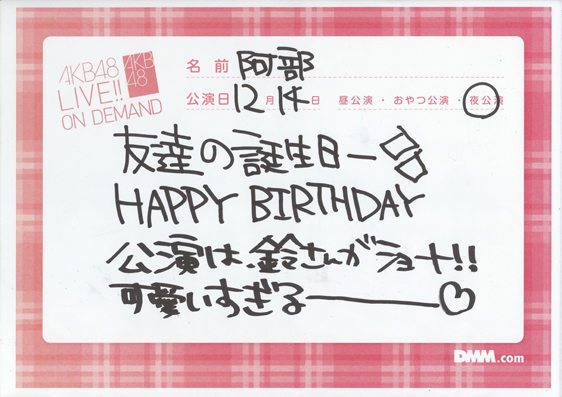 AKB48
LIVE!!
ON DEMAND
AKB
48
名前 阿部
公演日 12月14日 昼公演・おやつ公演・夜公演
友達の誕生日ー
HAPPY BIRTHDAY
公演は、鈴さんがショナ!!
可愛いすぎるー♡
DMM.com